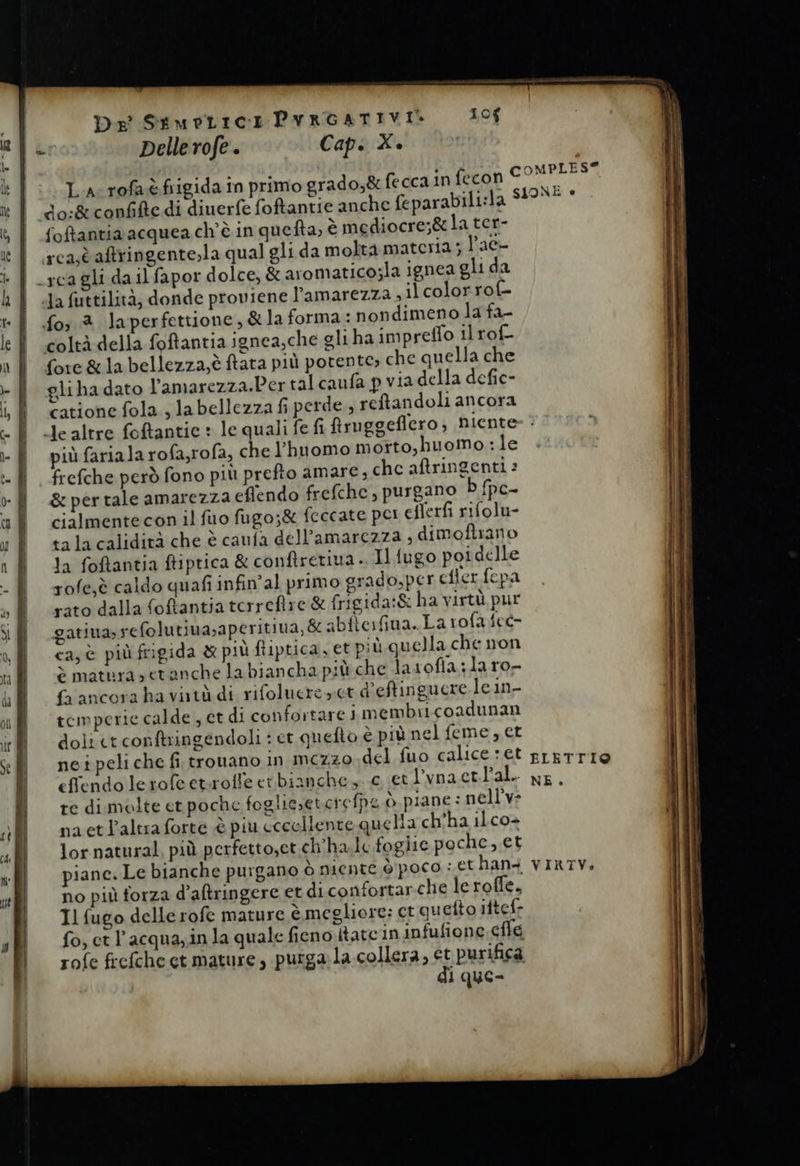 DE' SEMPLICI PVRGATIVI. 105
Delle rose. Cap. X.
La rosa è frigida in primo grado,& secca in secon COMPLES=
do:& consiste di diuerse sostantie anche separabili:la SIONE.
sostantia acquea ch'è in questa, è mediocre;& la ter-
rea,è astringente,la qual gli da molta materia; l'ae-
rea gli da il sapor dolce, & aromatico;la ignea gli da
la suttilità, donde prouiene l'amarezza, il color ros-
so, a la perfettione, & la forma: nondimeno la fa-
coltà della sostantia ignea,che gli ha impresso il ros-
sore & la bellezza,è stata più potente, che quella che
gli ha dato l'amarezza.Per tal causa p via della desic-
catione sola, la bellezza si perde, restandoli ancora
le altre sostantie: le quali se si struggessero, niente
più saria la rosa,rosa, che l'huomo morto,huomo: le
fresche però sono più presto amare, che astringenti:
& per tale amarezza essendo fresche, purgano b spe-
cialmente con il suo sugo;& seccate per essersi risolu-
ta la calidità che è causa dell'amarezza, dimostrano
la sostantia stiptica & constretiua. Il sugo poi delle
rose,è caldo quasi infin'al primo grado,per esser sepa
rato dalla sostantia terrestre & frigida:& ha virtù pur
gatiua, resolutiua,aperitiua, & abstersiua. La rosa sec-
ca, è più frigida & più stiptica, et più quella che non
è matura, et anche la biancha più che la rossa; la ro-
sa ancora ha virtù di risoluere, et d'estinguere le in-
temperie calde, et di confortare i membri coadunan
doli et constringendoli: et questo è più nel seme, et
ne i peli che si trouano in mezzo del suo calice: et ELETTIO
essendo le rose et rosse et bianche, e et l'vna et l'al- NE.
te di molte et poche foglie,et crespe ò piane: nell'v=
na et l'altra sorte è piu eccellente quella ch'ha il co=
lor natural più perfetto,et ch'ha le foglie poche, et
piane. Le bianche purgano ò niente ò poco: et han= VIRTV.
no più forza d'astringere et di confortar che le rosse.
Il sugo delle rose mature è megliore: et questo istes-
so, et l'acqua, in la quale sieno state in infusione esse
rose fresche et mature, purga la collera, et purifica
di que-